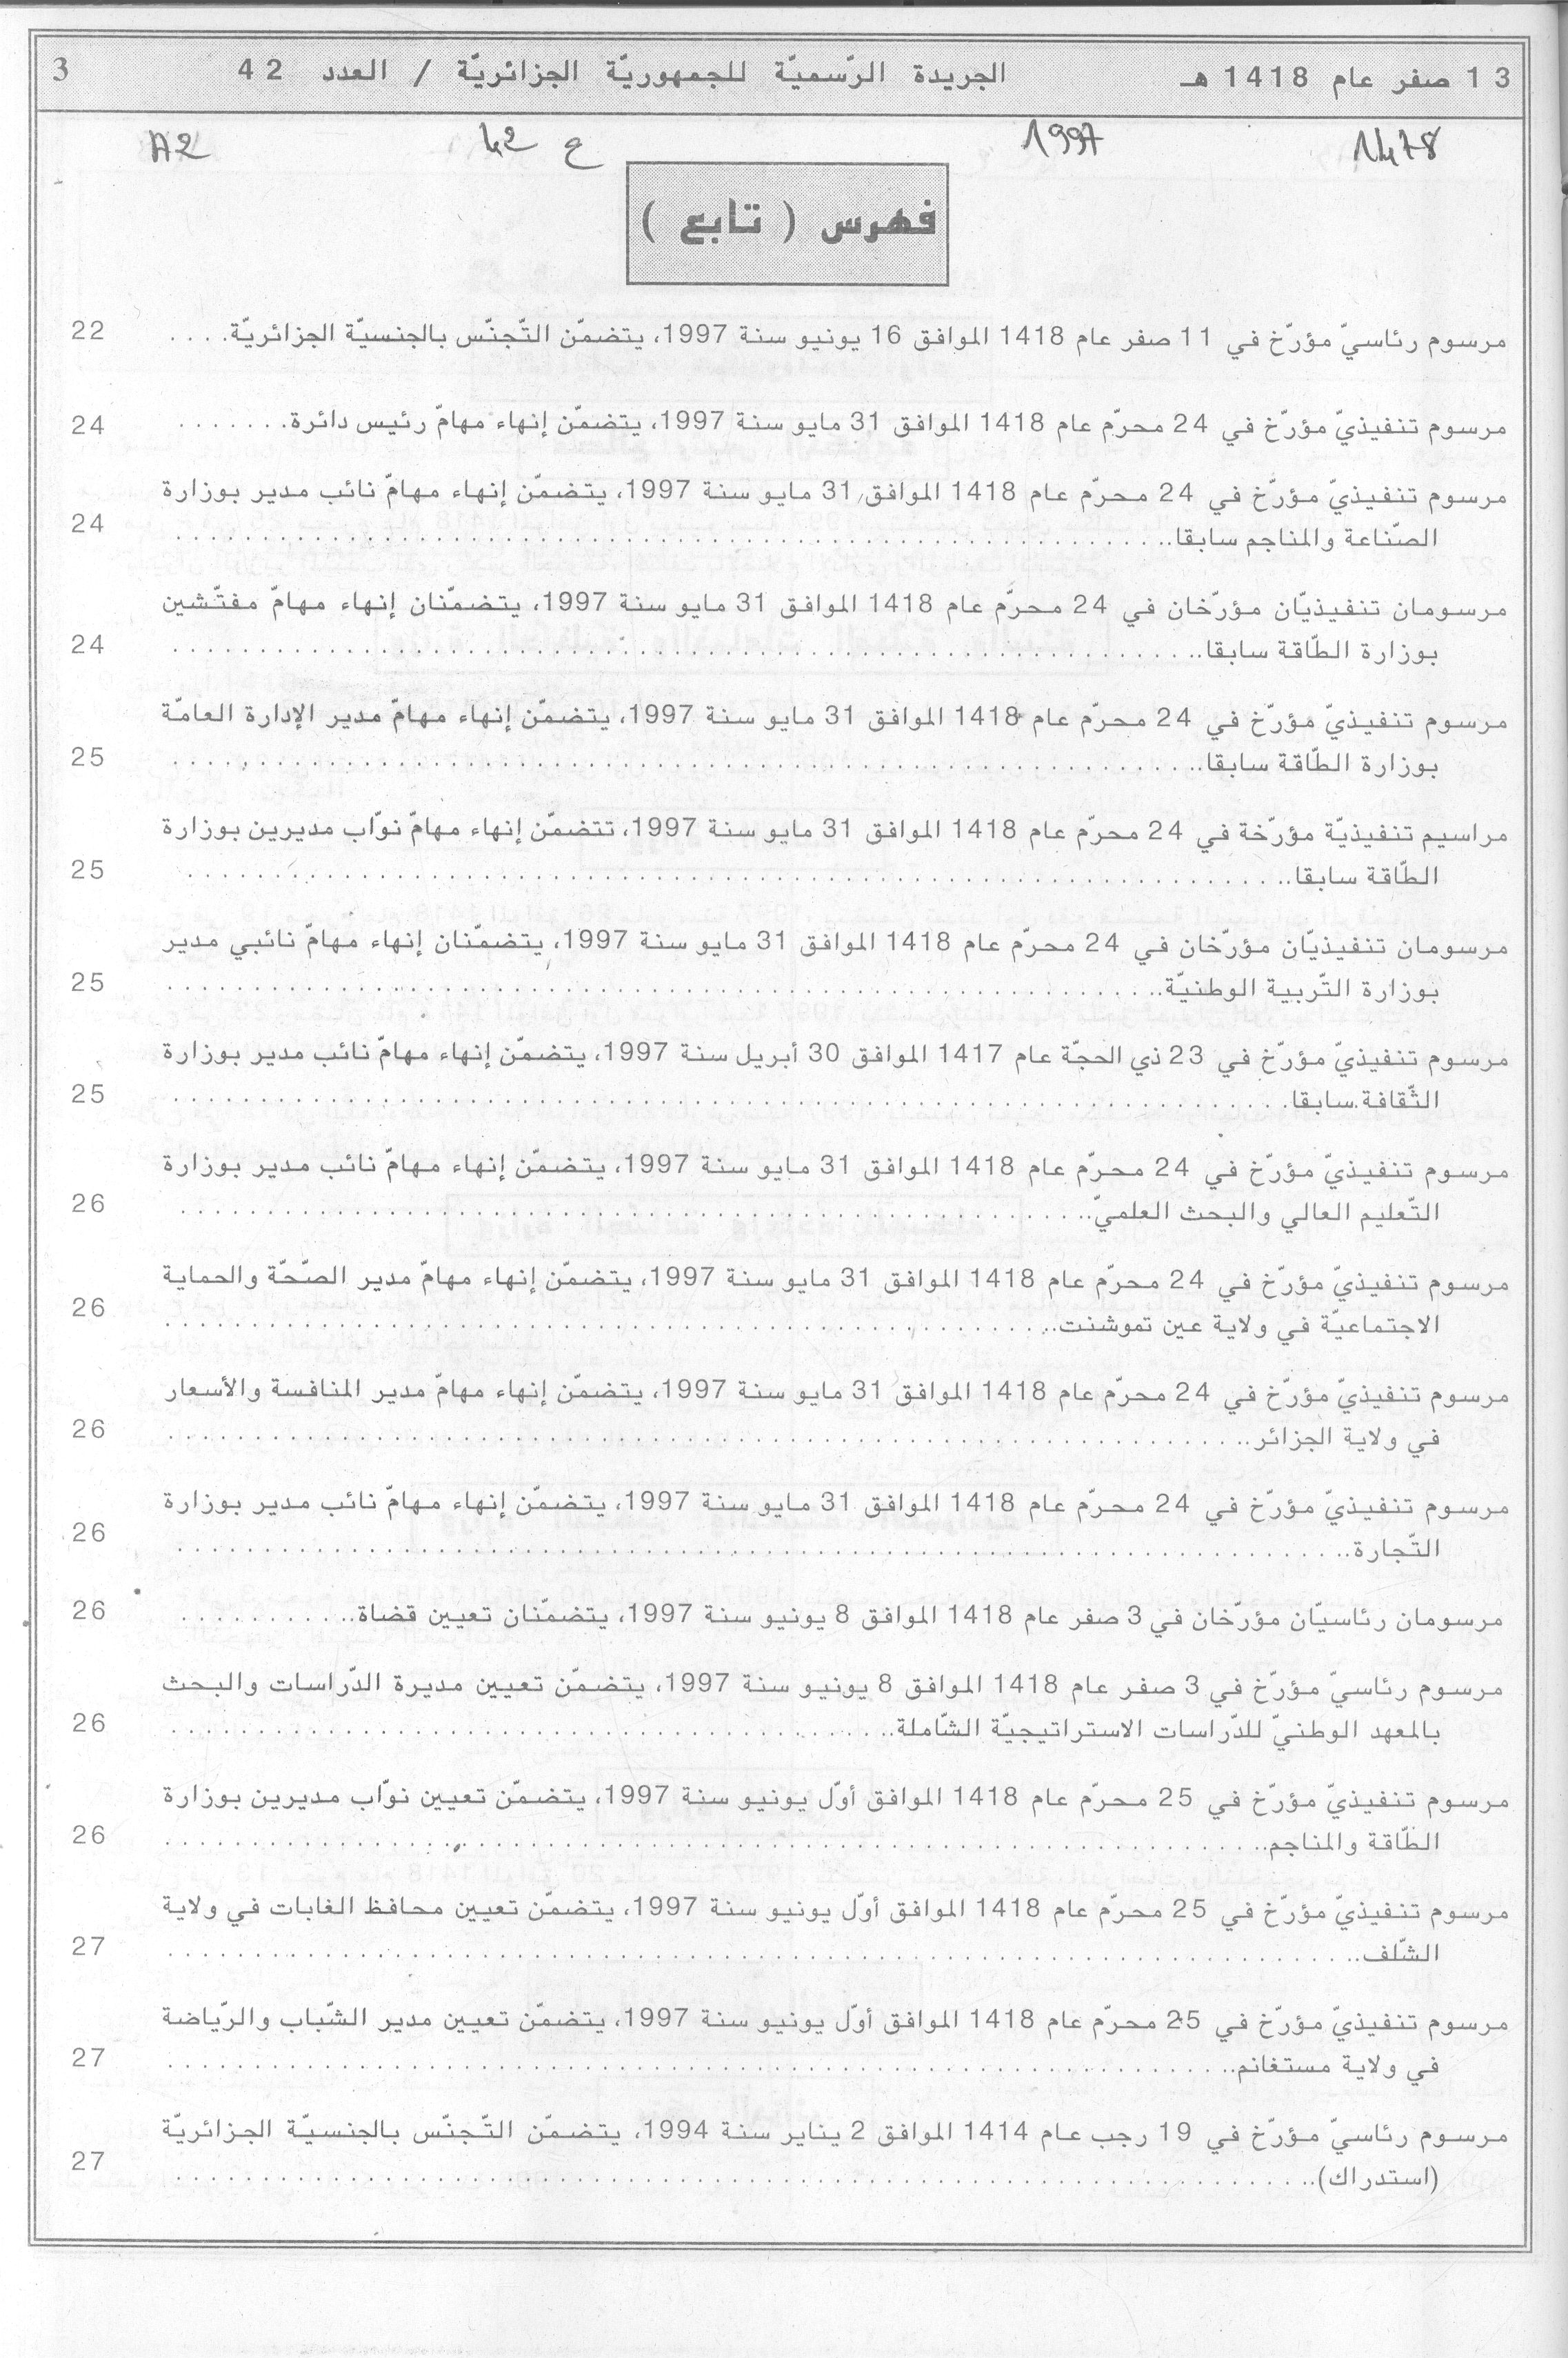 13 صفر عام 1418 هـ
الجريدة الرّسميّة للجمهوريّة الجزائريّة / العدد 42
3
1997
ع 42
A2
فهرس ( تابع )
مرسوم رئاسيّ مؤرّخ في 11 صفر عام 1418 الموافق 16 يونيو سنة 1997، يتضمّن التّجنّس بالجنسيّة الجزائريّة. . . . 22
مرسوم تنفيذيّ مؤرّخ في 24 محرّم عام 1418 الموافق 31 مايو سنة 1997، يتضمّن إنهاء مهامّ رئيس دائرة. . . . . . . 24
مرسوم تنفيذيّ مؤرّخ في 24 محرّم عام 1418 الموافق 31 مايو سنة 1997، يتضمّن إنهاء مهامّ نائب مدير بوزارة
الصّناعة والمناجم سابقا.. 24
مرسومان تنفيذيّان مؤرّخان في 24 محرّم عام 1418 الموافق 31 مايو سنة 1997، يتضمّنان إنهاء مهامّ مفتّشين
بوزارة الطّاقة سابقا.. 24
مرسوم تنفيذيّ مؤرّخ في 24 محرّم عام 1418 الموافق 31 مايو سنة 1997، يتضمّن إنهاء مهامّ مدير الإدارة العامّة
بوزارة الطّاقة سابقا.. 25
مراسيم تنفيذيّة مؤرّخة في 24 محرّم عام 1418 الموافق 31 مايو سنة 1997، تتضمّن إنهاء مهامّ نوّاب مديرين بوزارة
الطّاقة سابقا.. 25
مرسومان تنفيذيّان مؤرّخان في 24 محرّم عام 1418 الموافق 31 مايو سنة 1997، يتضمّنان إنهاء مهامّ نائبي مدير
بوزارة التّربية الوطنيّة.. 25
مرسوم تنفيذيّ مؤرّخ في 23 ذي الحجّة عام 1417 الموافق 30 أبريل سنة 1997، يتضمّن إنهاء مهامّ نائب مدير بوزارة
الثّقافة سابقا. 25
مرسوم تنفيذيّ مؤرّخ في 24 محرّم عام 1418 الموافق 31 مايو سنة 1997، يتضمّن إنهاء مهامّ نائب مدير بوزارة
التّعليم العالي والبحث العلميّ.. 26
مرسوم تنفيذيّ مؤرّخ في 24 محرّم عام 1418 الموافق 31 مايو سنة 1997، يتضمّن إنهاء مهامّ مدير الصّحّة والحماية
الاجتماعيّة في ولاية عين تموشنت.. 26
مرسوم تنفيذيّ مؤرّخ في 24 محرّم عام 1418 الموافق 31 مايو سنة 1997، يتضمّن إنهاء مهامّ مدير المنافسة والأسعار
في ولاية الجزائر.. 26
مرسوم تنفيذيّ مؤرّخ في 24 محرّم عام 1418 الموافق 31 مايو سنة 1997، يتضمّن إنهاء مهامّ نائب مدير بوزارة
التّجارة.. 26
مرسومان رئاسيّان مؤرّخان في 3 صفر عام 1418 الموافق 8 يونيو سنة 1997، يتضمّنان تعيين قضاة.. 26
مرسوم رئاسيّ مؤرّخ في 3 صفر عام 1418 الموافق 8 يونيو سنة 1997، يتضمّن تعيين مديرة الدّراسات والبحث
بالمعهد الوطنيّ للدّراسات الاستراتيجيّة الشّاملة.. 26
مرسوم تنفيذيّ مؤرّخ في 25 محرّم عام 1418 الموافق أوّل يونيو سنة 1997، يتضمّن تعيين نوّاب مديرين بوزارة
الطّاقة والمناجم.. 26
مرسوم تنفيذيّ مؤرّخ في 25 محرّم عام 1418 الموافق أوّل يونيو سنة 1997، يتضمّن تعيين محافظ الغابات في ولاية
الشّلف.. 27
مرسوم تنفيذيّ مؤرّخ في 25 محرّم عام 1418 الموافق أوّل يونيو سنة 1997، يتضمّن تعيين مدير الشّباب والرّياضة
في ولاية مستغانم.. 27
مرسوم رئاسيّ مؤرّخ في 19 رجب عام 1414 الموافق 2 يناير سنة 1994، يتضمّن التّجنّس بالجنسيّة الجزائريّة
(استدراك).. 27